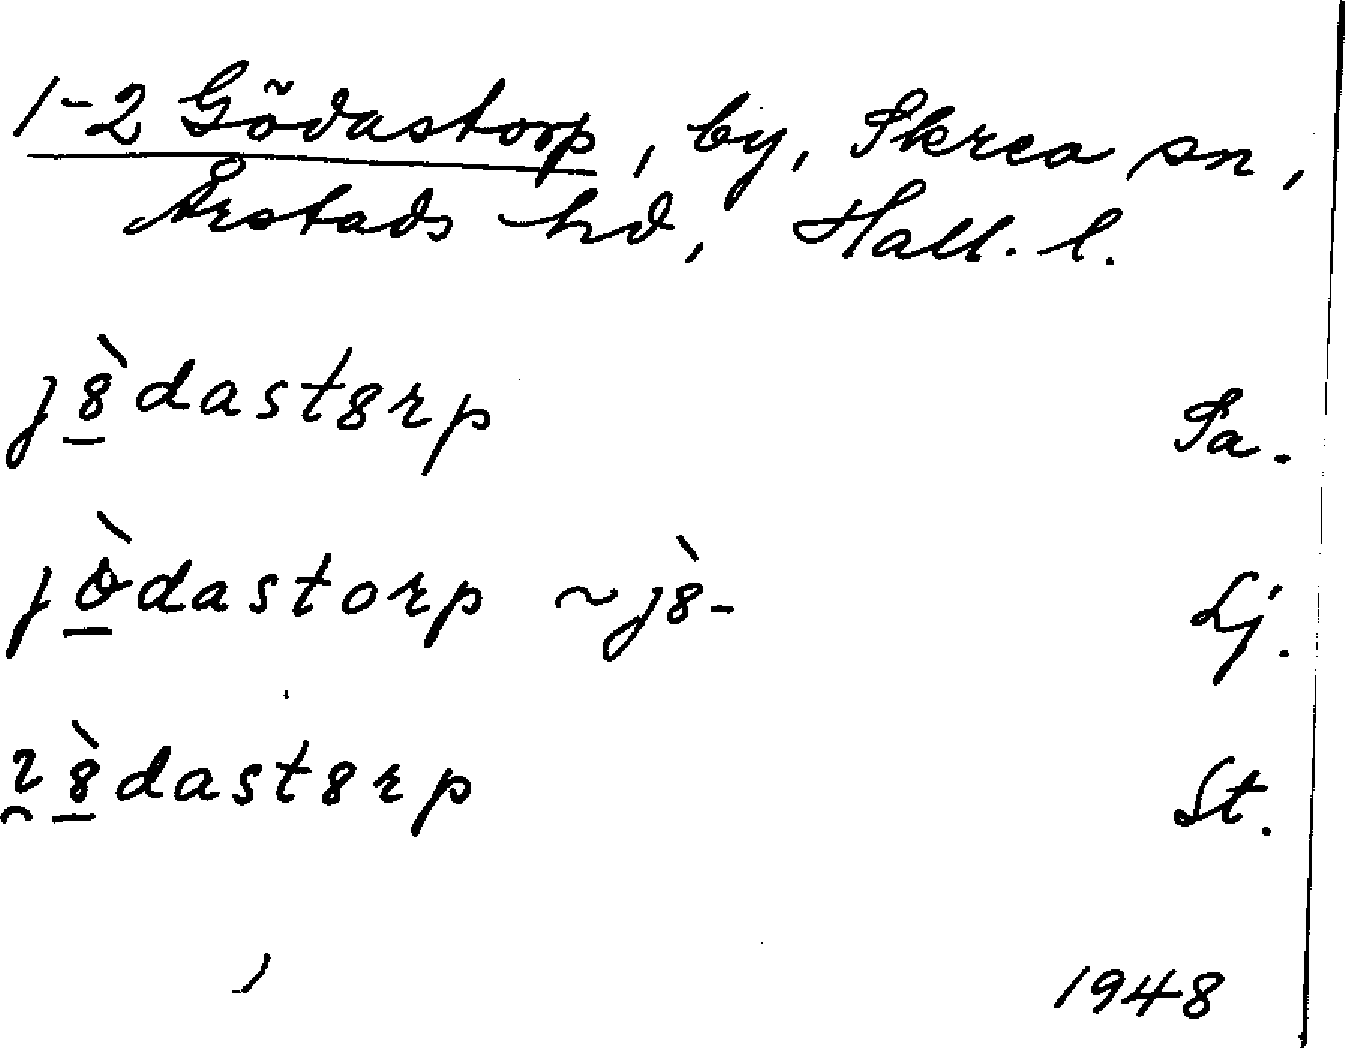 1-2 Gödastorp, by, Skrea sn,
Årstads hd, Hall. l.
j8̠̀dasts8rp Sa.
jò̠dastorp ~ j8̀- Lj.
ı̯8̠̀dast8rp St.
1948